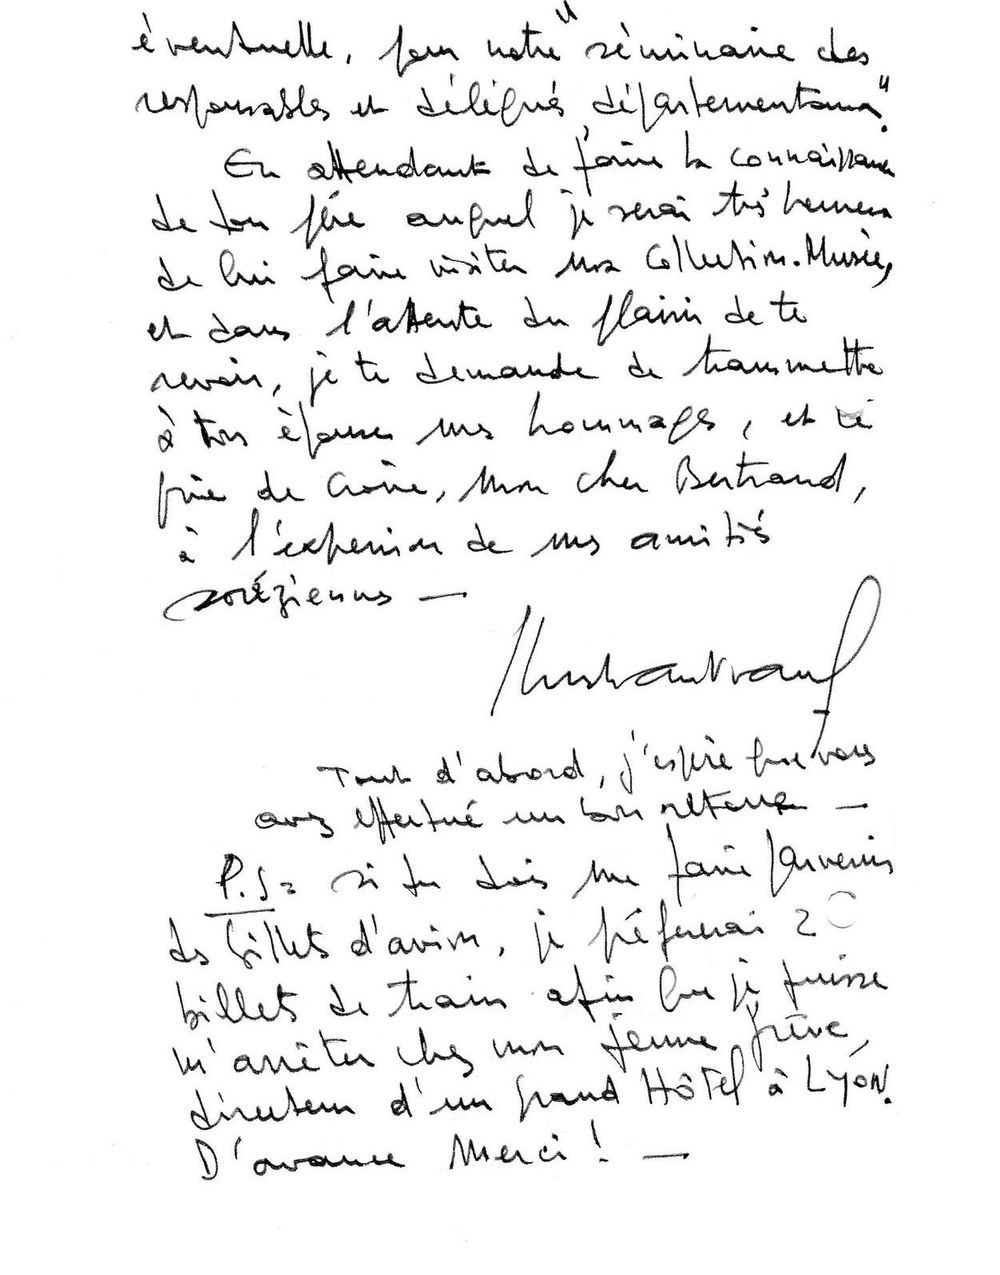 éventuelle, pour notre "séminaire des
responsables et délégués départementaux".
En attendant de faire la connaissance
de ton père auquel je serai très heureux
de lui faire visiter ma Collection-Musée,
et dans l'attente du plaisir de te
revoir, je te demande de transmettre
à ton épouse mes hommages, et te
prie de croire, mon cher Bertrand,
à l'expression de mes amitiés
soréziennes —
Tout d'abord, j'espère que vous
avez effectué un bon retour —
P.S= si tu dois me faire parvenir
des billets d'avion, je préférerai 2
billets de train afin que je puisse
m'arrêter chez mon jeune frère,
directeur d'un grand Hôtel à LYON.
D'avance Merci ! —